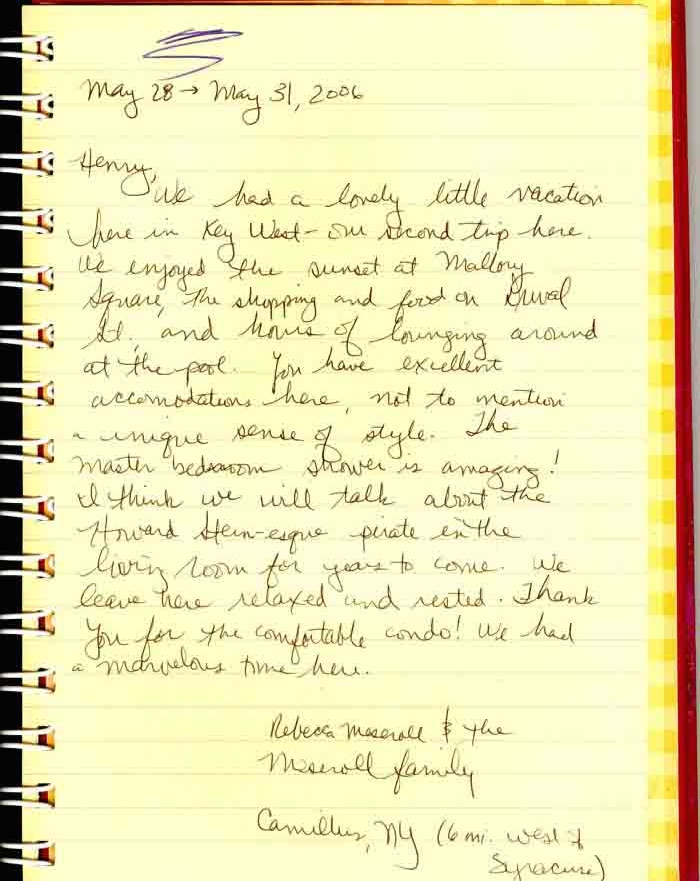 May 28 → May 31, 2006
Henry,
We had a lovely little vacation
here in Key West - our second trip here.
We enjoyed the sunset at Mallory
Square, the shopping and food on Duval
St., and hours of lounging around
at the pool. You have excellent
accomodations here, not to mention
a unique sense of style. The
master bedroom shower is amazing!
I think we will talk about the
Howard Stern-esque pirate in the
living room for years to come. We
leave here relaxed and rested. Thank
you for the comfortable condo! We had
a marvelous time here.
Rebecca Meseroll & the
Meseroll family
Camillus, NY (6 mi. west of
Syracuse)